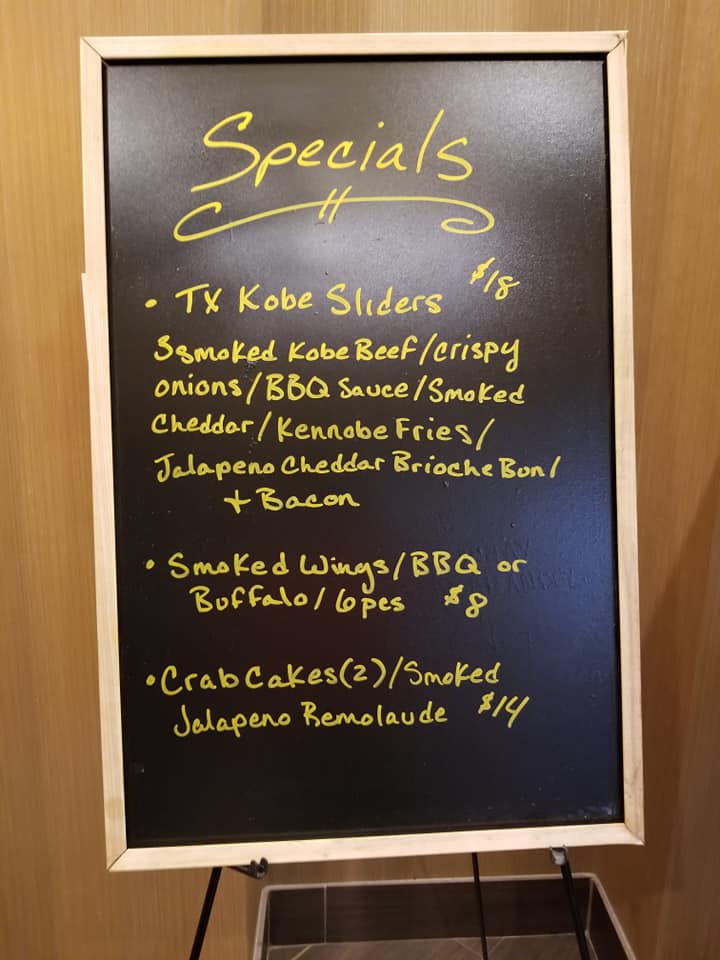 Specials
• TX Kobe Sliders $18
3 smoked Kobe Beef/crispy
onions/BBQ Sauce/Smoked
Cheddar/Kennobe Fries/
Jalapeno Cheddar Brioche Bun/
+ Bacon
• Smoked Wings/BBQ or
Buffalo/6pcs $8
• Crab Cakes(2)/Smoked
Jalapeno Remolaude $14